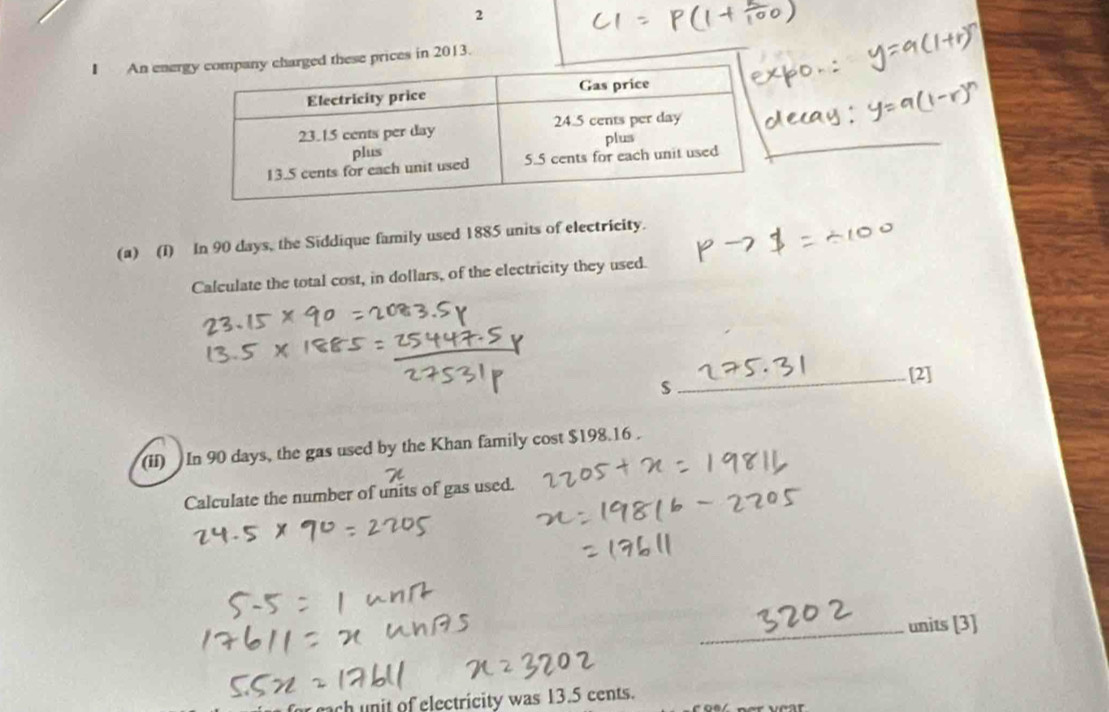 2
CI = P(1 + /100)
1 An energy company charged these prices in 2013.
expo.: y=a(1+r)ⁿ
decay: y=a(1-r)ⁿ
Electricity price Gas price
23.15 cents per day 24.5 cents per day
plus plus
13.5 cents for each unit used 5.5 cents for each unit used
(a) (i) In 90 days, the Siddique family used 1885 units of electricity.
p → $ = ÷100
Calculate the total cost, in dollars, of the electricity they used.
23.15 × 90 = 2083.5p
13.5 × 1885 = 25447.5p
27531p
$ 275.31 [2]
(ii) In 90 days, the gas used by the Khan family cost $198.16 .
x
Calculate the number of units of gas used.
2205 + x = 19816
24.5 × 90 = 2205
x = 19816 - 2205
= 17611
5.5 = 1 unit
17611 = x units
3202 units [3]
5.5x = 17611 x = 3202
for each unit of electricity was 13.5 cents.
8% per year